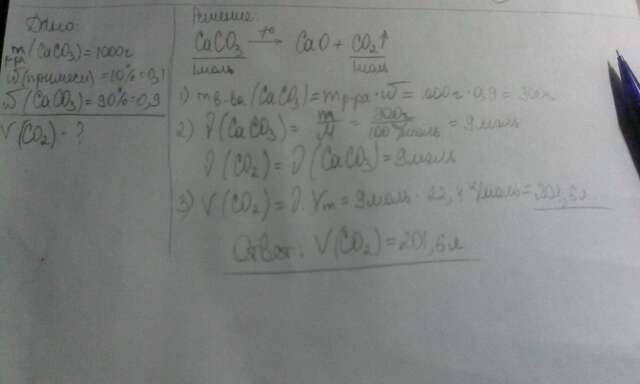 Дано:
m р-ра (CaCO₃) = 1000г
ω (примеси) = 10% = 0,1
ω (CaCO₃) = 90% = 0,9
V(CO₂) - ?
Решение:
CaCO₃ →t° CaO + CO₂↑
1моль 1моль
1) m в-ва (CaCO₃) = m р-ра · ω = 1000г · 0,9 = 900г
2) ν (CaCO₃) = m/M = 900г/100г/моль = 9моль
ν (CO₂) = ν (CaCO₃) = 9моль
3) V (CO₂) = ν · Vm = 9моль · 22,4 л/моль = 201,6л
Ответ: V(CO₂) = 201,6л